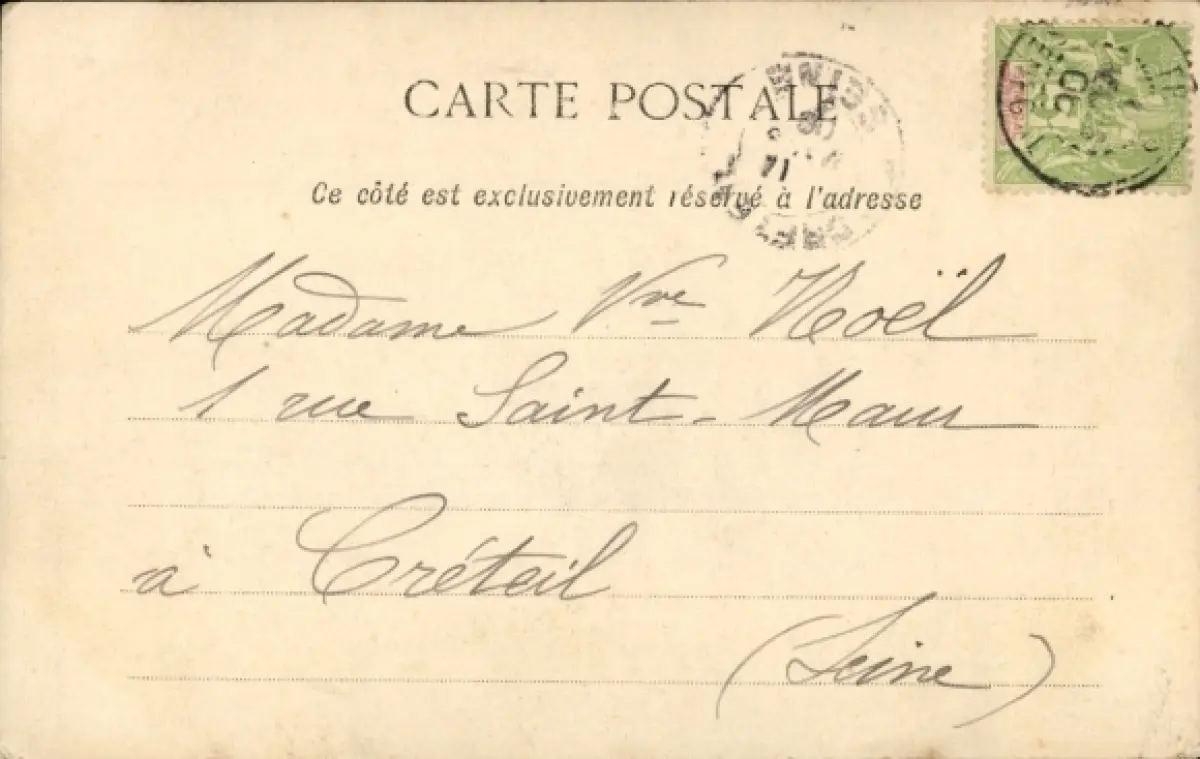 CARTE POSTALE
Ce côté est exclusivement réservé à l'adresse
Madame Vve Noël
1 rue Saint-Maur
à Créteil
(Seine)